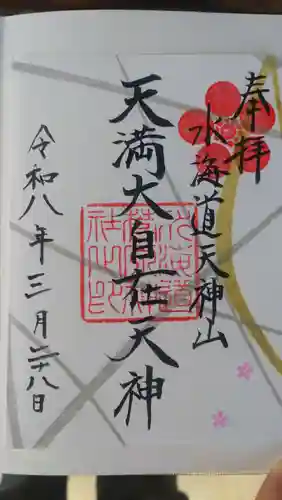 奉拝
水海道天神山
天満大自在天神
令和八年三月二十八日